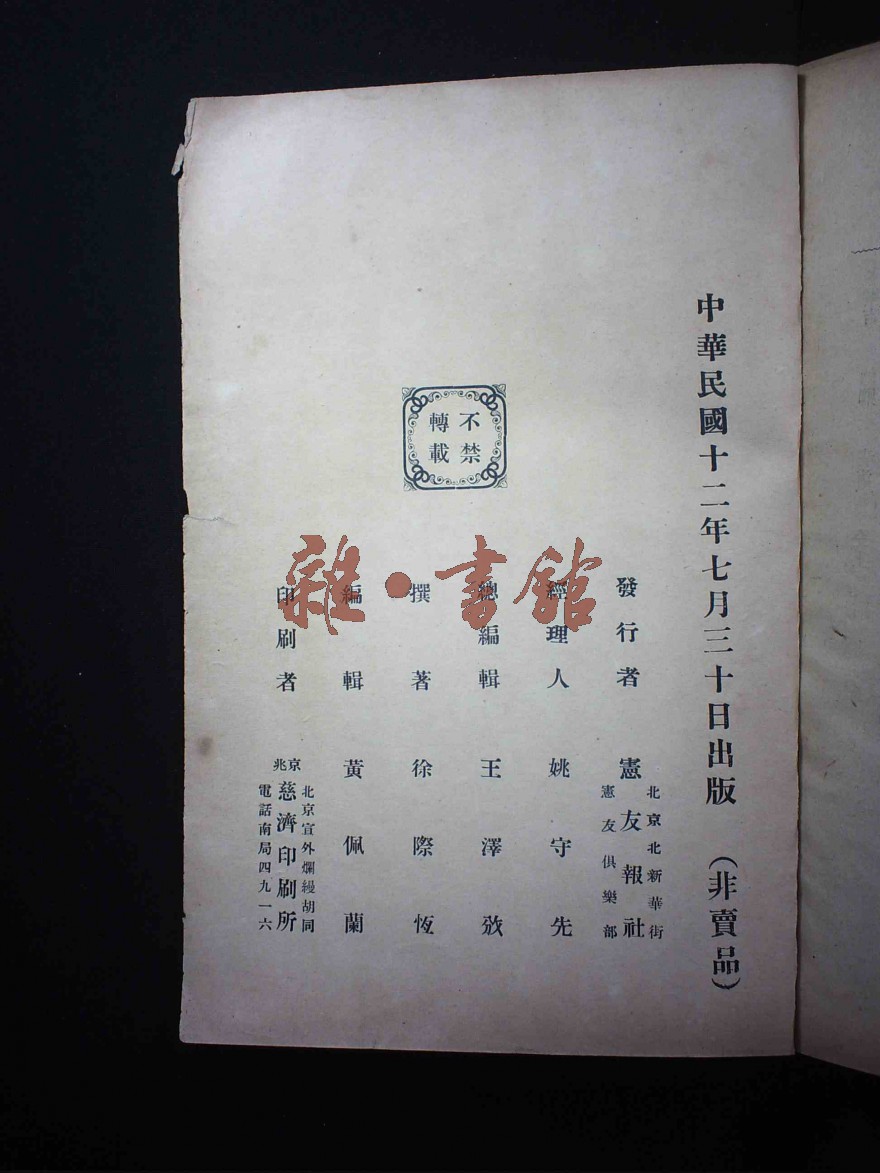 中華民國十二年七月三十日出版 （非賣品）
不禁
轉載
北京北新華街
發行者 憲友報社
憲友俱樂部
經理人 姚守先
總編輯 王澤攽
撰著 徐際恆
編輯 黃佩蘭
北京宣外爛縵胡同
印刷者 京兆慈濟印刷所
電話南局四九一六
雜·書館